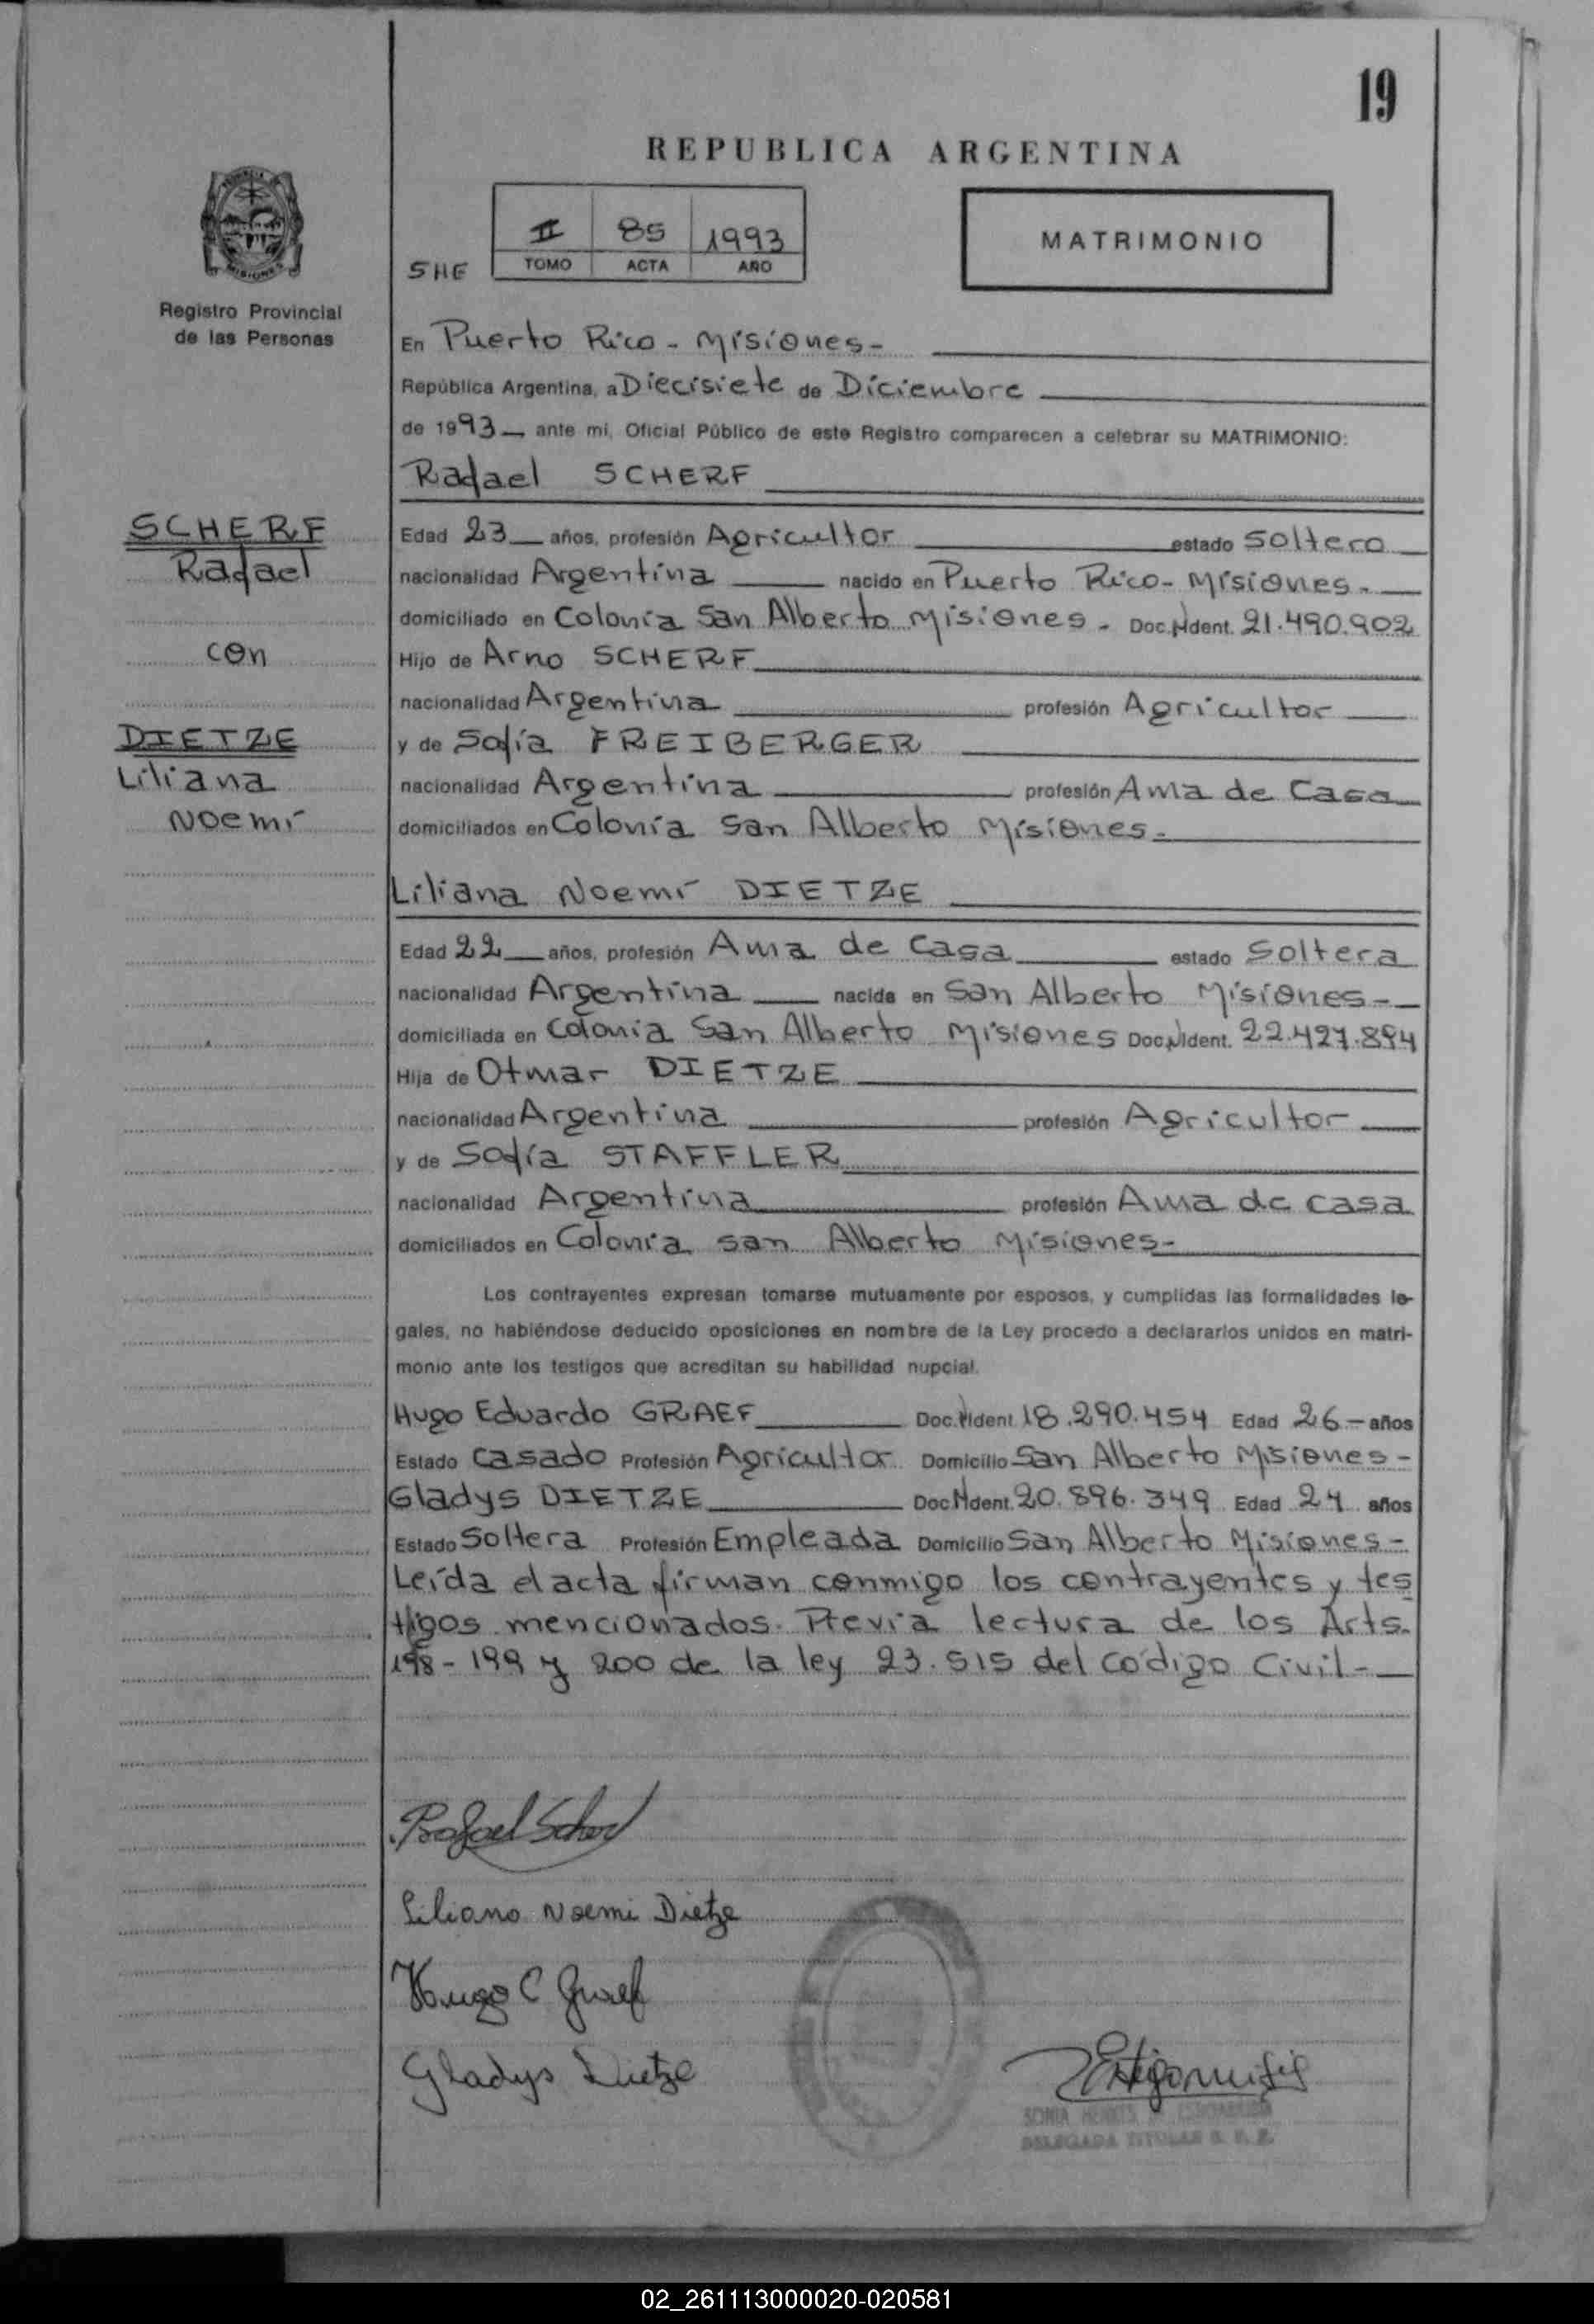 19
REPUBLICA ARGENTINA
II 85 1993
TOMO ACTA AÑO
SHE
MATRIMONIO
MISIONES
Registro Provincial
de las Personas
En Puerto Rico - Misiones -
República Argentina, a Diecisiete de Diciembre
de 1993 ante mi, Oficial Público de este Registro comparecen a celebrar su MATRIMONIO:
Rafael SCHERF
SCHERF
Rafael
con
DIETZE
Liliana
Noemí
Edad 23 años, profesión Agricultor estado Soltero
nacionalidad Argentina nacido en Puerto Rico - Misiones -
domiciliado en Colonia San Alberto Misiones - Doc.N.Ident. 21.490.902
Hijo de Arno SCHERF
nacionalidad Argentina profesión Agricultor
y de Sofía FREIBERGER
nacionalidad Argentina profesión Ama de Casa
domiciliados en Colonia San Alberto Misiones -
Liliana Noemí DIETZE
Edad 22 años, profesión Ama de Casa estado Soltera
nacionalidad Argentina nacida en San Alberto Misiones -
domiciliada en Colonia San Alberto Misiones Doc.N.Ident. 22.427.894
Hija de Otmar DIETZE
nacionalidad Argentina profesión Agricultor
y de Sofía STAFFLER
nacionalidad Argentina profesión Ama de casa
domiciliados en Colonia San Alberto Misiones -
Los contrayentes expresan tomarse mutuamente por esposos, y cumplidas las formalidades le-
gales, no habiéndose deducido oposiciones en nombre de la Ley procedo a declararlos unidos en matri-
monio ante los testigos que acreditan su habilidad nupcial.
Hugo Eduardo GRAEF Doc.N.Ident. 18.290.454 Edad 26 - años
Estado Casado Profesión Agricultor Domicilio San Alberto Misiones -
Gladys DIETZE Doc.N.Ident. 20.896.349 Edad 24 años
Estado Soltera Profesión Empleada Domicilio San Alberto Misiones -
Leída el acta firman conmigo los contrayentes y tes
tigos mencionados. Previa lectura de los Arts.
198 - 199 y 200 de la ley 23.515 del código Civil -
Rafael Scherf
Liliana Noemi Dietze
Hugo E Graef
Gladys Dietze
SONIA
DELEGADA TITULAR R. P. P.
02_261113000020-020581